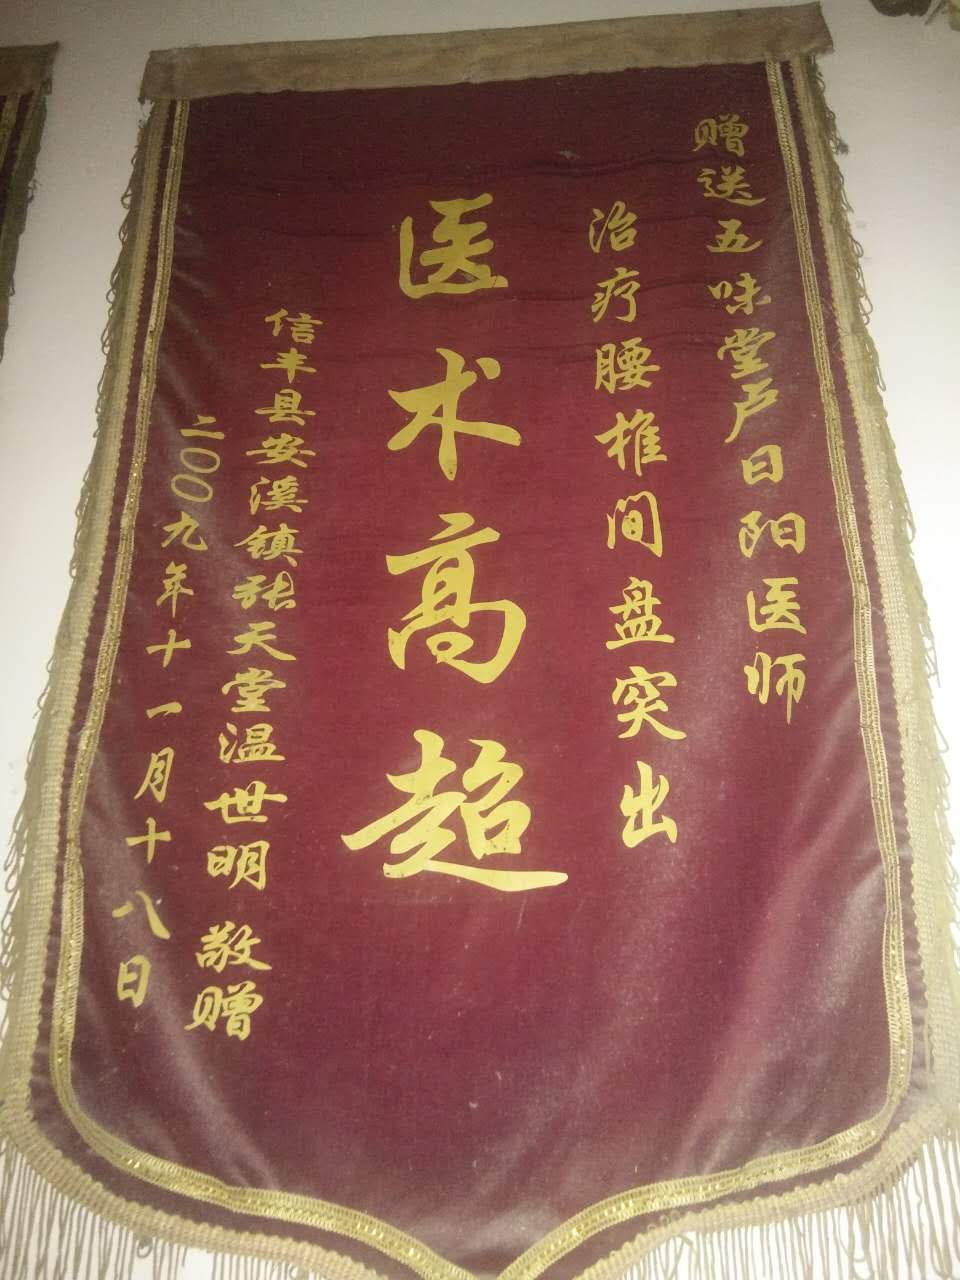 赠送五味堂卢日阳医师
治疗腰椎间盘突出
医术高超
信丰县安溪镇张天堂温世明 敬赠
二〇〇九年十一月十八日